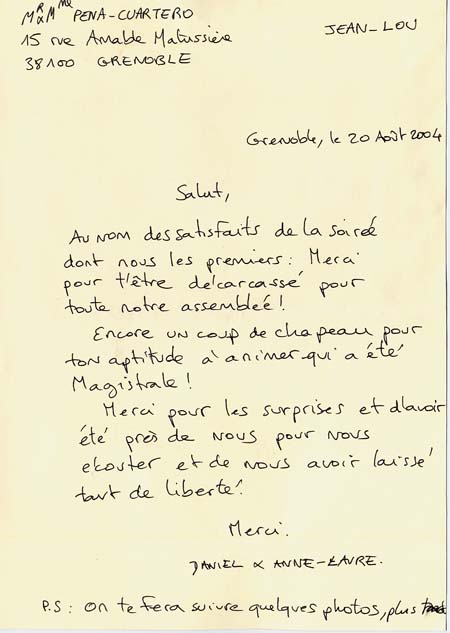 MR & MMe PENA-CUARTERO
15 rue Amable Matussière
38100 GRENOBLE
JEAN-LOU
Grenoble, le 20 Août 2004
Salut,
Au nom des satisfaits de la soireé
dont nous les premiers: Merci
pour t'être décarcassé pour
toute notre assembleé!
Encore un coup de chapeau pour
ton aptitude à animer qui a été
Magistrale!
Merci pour les surprises et d'avoir
été près de nous pour nous
ecouter et de nous avoir laissé
tant de liberté!
Merci.
DANIEL & ANNE-LAURE.
P.S: On te fera suivre quelques photos, plus